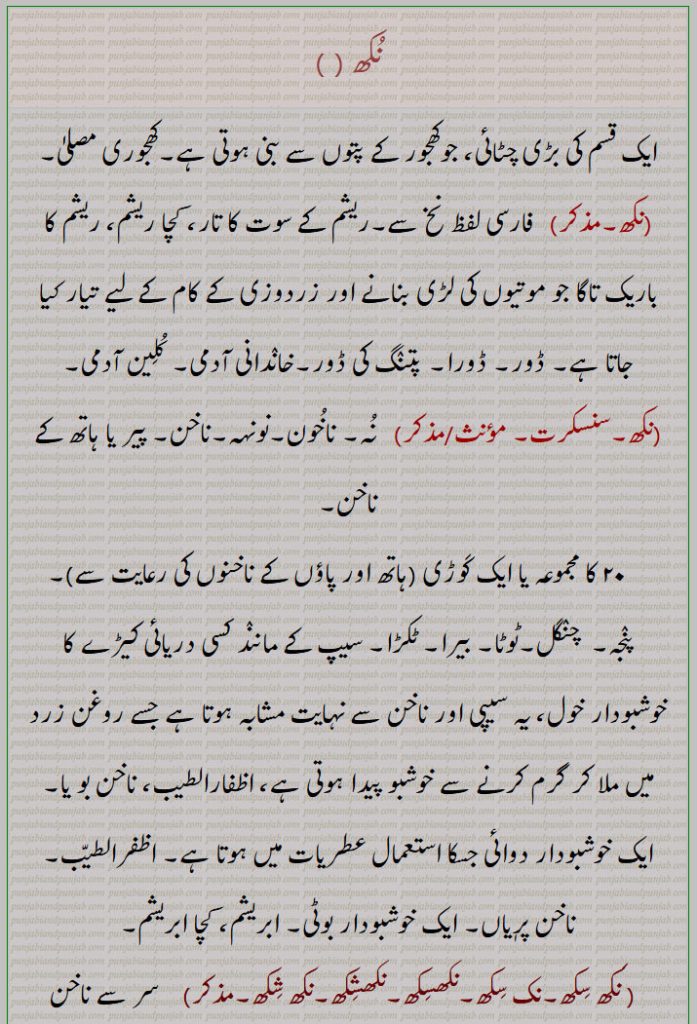 نُکھ ( )
ایک قسم کی بڑی چٹائی، جو کھجور کے پتوں سے بنی ہوتی ہے۔ کھجوری مصلیٰ۔
(نکھ۔مذکر) فارسی لفظ نخ سے۔ ریشم کے سوت کا تار، کچا ریشم، ریشم کا
باریک تاگا جو موتیوں کی لڑی بنانے اور زردوزی کے کام کے لیے تیار کیا
جاتا ہے۔ ڈور۔ ڈورا۔ پتنگ کی ڈور۔خاندانی آدمی۔ کُلِین آدمی۔
(نکھ۔سنسکرت۔ مؤنث/مذکر) نُہ۔ ناخُون۔نونہہ۔ناخن۔ پیر یا ہاتھ کے
ناخن۔
۲۰ کا مجموعہ یا ایک کَوڑی (ہاتھ اور پاؤں کے ناخنوں کی رعایت سے)۔
پنْجہ۔ چنْگل۔ٹوٹا۔ بیرا۔ ٹکڑا۔ سیپ کے مانند کسی دریائی کیڑے کا
خوشبودار خول، یہ سیپی اور ناخن سے نہایت مشابہ ہوتا ہے جسے روغن زرد
میں ملا کر گرم کرنے سے خوشبو پیدا ہوتی ہے، اظفارالطیب، ناخن بویا۔
ایک خوشبودار دوائی جسکا استعمال عطریات میں ہوتا ہے۔ اظفرالطیّب۔
ناخن پریاں۔ ایک خوشبودار بوٹی۔ ابریشم، کچا ابریشم۔
( نکھ سِکھ۔نک سِکھ۔نکھسِکھ۔نکھشِکھ۔نکھ شِکھ۔مذکر) سر سے ناخن